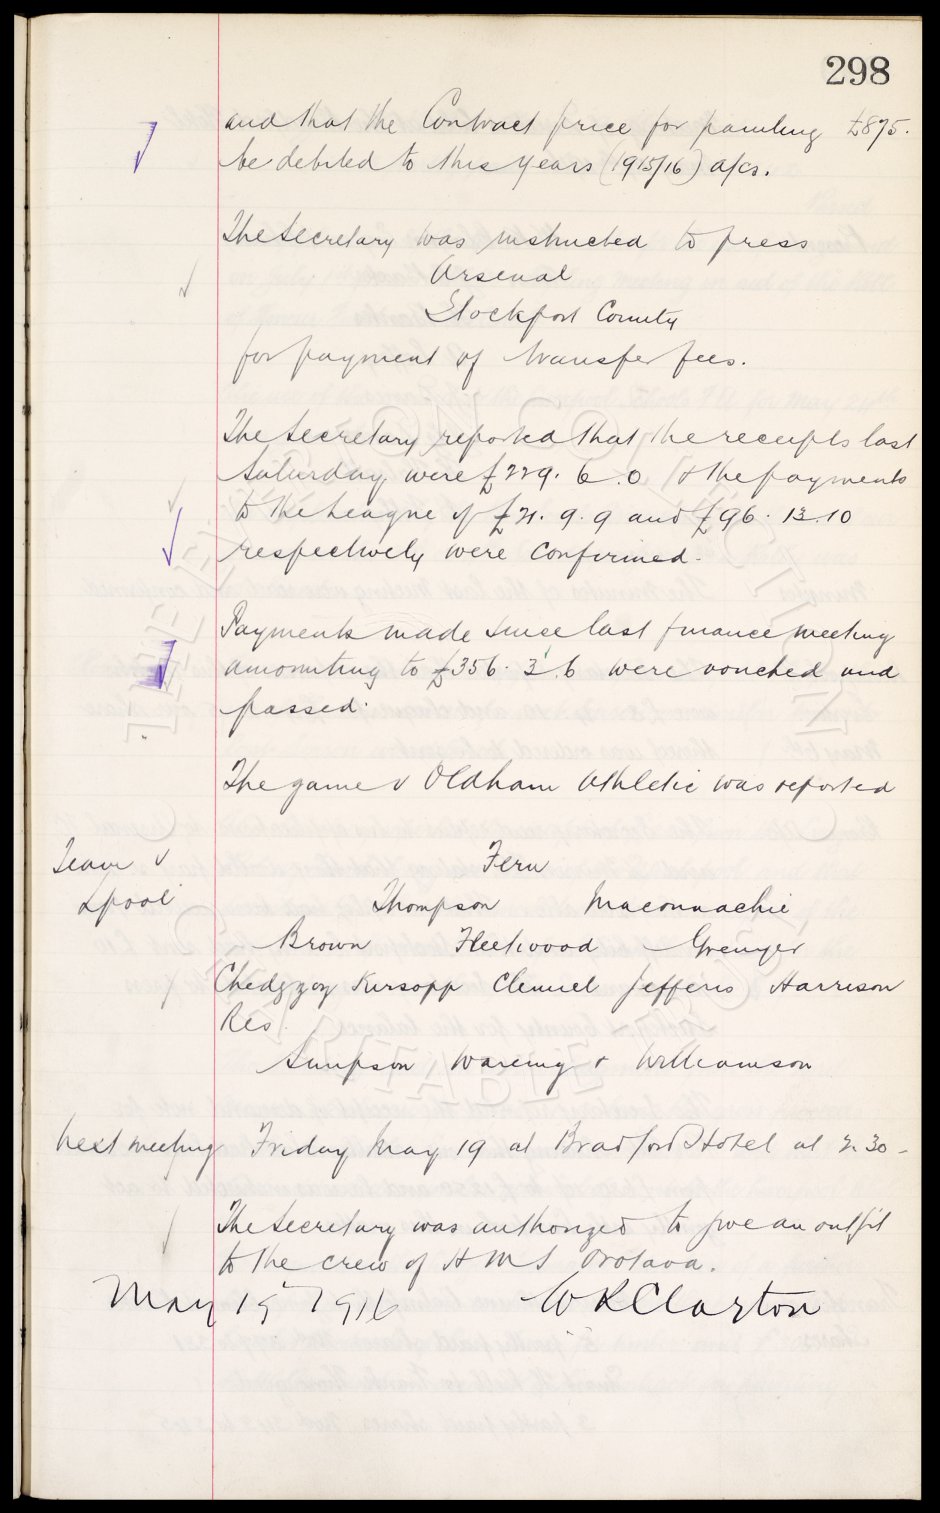 298
and that the Contract price for painting £875.
be debited to this years (1915/16) a/cs.
The Secretary was instructed to press
Arsenal
Stockport County
for payment of transfer fees.
The Secretary reported that the receipts last
Saturday were £229. 6. 0. & the payments
to the League of £21. 9. 9 and £96. 13. 10
respectively were confirmed.
Payments made since last finance meeting
amounting to £356. 3. 6 were vouched and
passed.
The game v Oldham Athletic was reported
Team v
Lpool
Fern
Thompson Maconnachie
Brown Fleetwood Grenyer
Chedgzoy Kirsopp Clennel Jefferis Harrison
Res.
Simpson, Wareing & Williamson
Next meeting Friday May 19 at Bradford Hotel at 2.30-
The Secretary was authorized to give an outfit
to the crew of H M S Orotava.
May 19 1916 W R Clayton